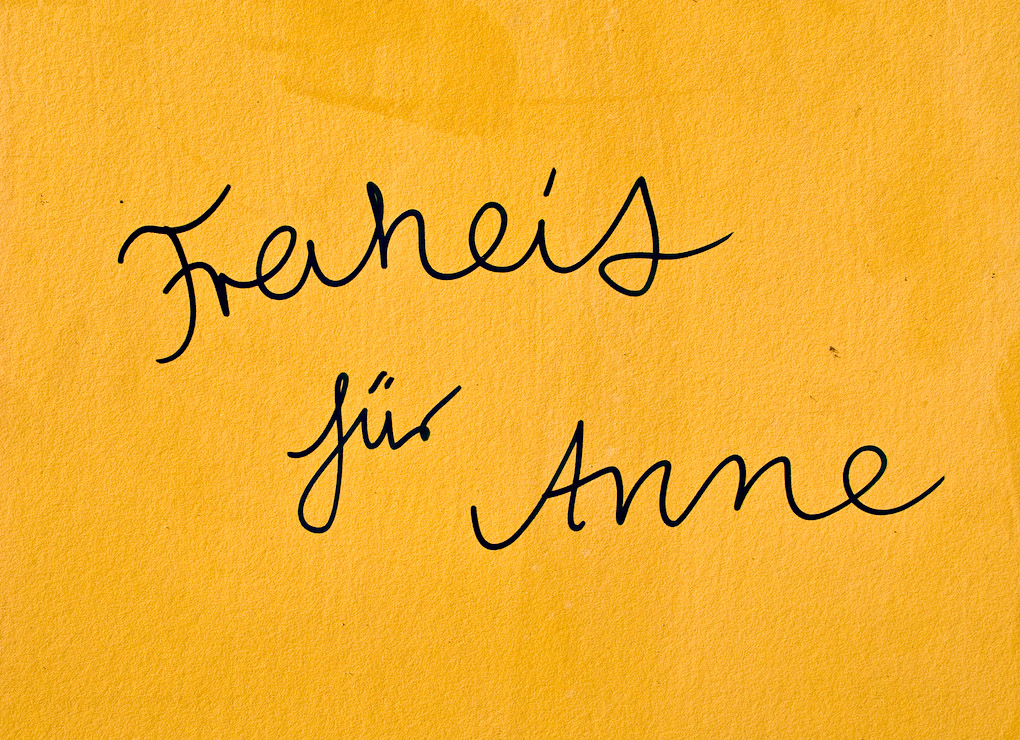 Freiheit
für
Anne